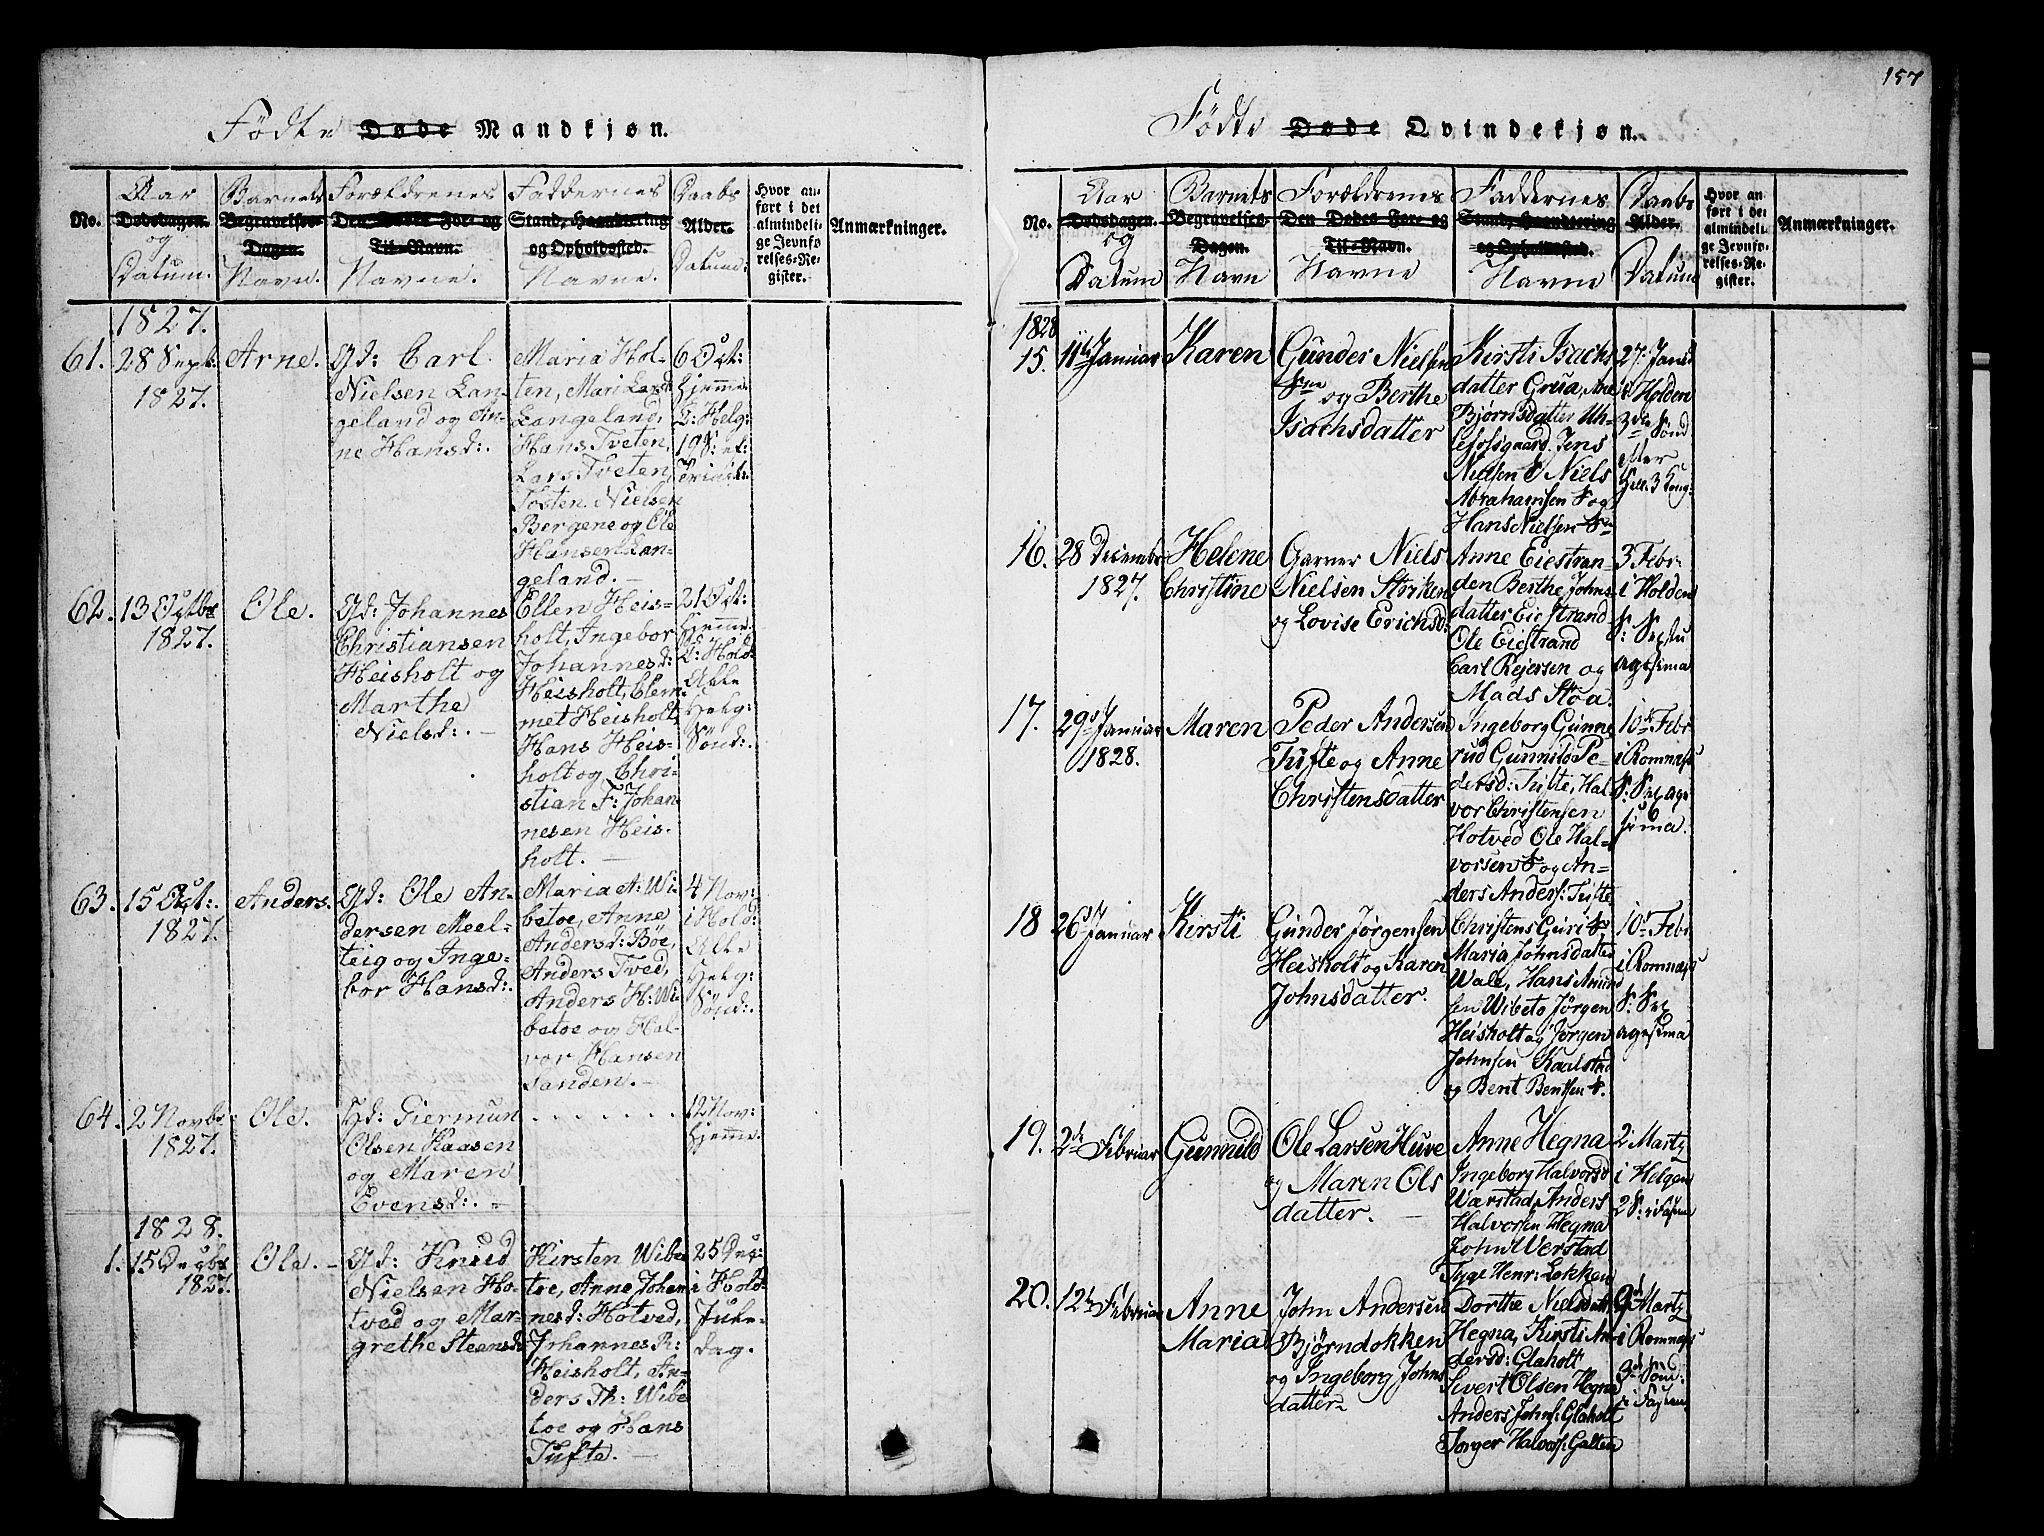 157
Födte Døde Mandkjøn.
No.
Aar
Dødsdagen.
og
Datum.
Barnets
Begravelses-
Dagen.
Navn.
Forældrenes
Den Dødes For- og
Til-Navn.
Navne.
Faddernes
Stand, Haandtering
og Opholdssted.
Navne.
Daabs
Alder.
Datum:
Hvor an-
ført i det
almindeli-
ge Jevnfø-
relses-Re-
gister.
Anmærkninger.
1827.
61.
28 Sept:
1827.
Arne.
Gd: Carl
Nielsen Lan-
geland og An-
ne Hansd:.
Maria Hol-
ten, Mari Larsd
Langeland,
Hans Tveten,
Lars Tveten,
Tosten Nielsen
Bergene og Ole
Hansen Lan-
geland. –
6 Oct:
hjeme
D: Helg:
19 S: ef:
Trinit:
62.
13 Octbr
1827.
Ole.
Gd: Johannes
Christiansen
Heisholt og
Marthe
Nielsd:. –
Ellen Heis-
holt, Ingebor
Johannesd:
Heisholt, Clem-
met Heisholt,
Hans Heis-
holt og Chri-
stian F: Johan
nesen Heis-
holt. –
21 Oct:
hjeme.
D: Hold:
Alle
Helg:
Sönd:.
63.
15 Oct:.
1827.
Anders.
Gd: Ole An-
dersen Meel-
teig og Inge-
bor Hansd:.
Maria A: Wi-
betoe, Anne
Andersd: Böe,
Anders Tved,
Anders H: Wi-
betoe og Hal-
vor Hansen
Sanden. –
4 Nov:
i Hold:
Alle
Helg:
Sönd:.
64.
2 Novbr
1827.
Ole.
Hd: Giermun
Olsen Kaasen
og Maren
Evensd:. –
. . . . . . .
12 Nov:
hjeme.
1828.
1.
15 Decbr
1827.
Ole. –
Gd: Knud
Nielsen Ho-
tved og Mar-
grethe Steensd:
Kirsten Wibe
toe, Anne Johan
nesd: Hotved,
Johannes R:
Heisholt, An-
ders Th: Wibe
toe og Hans
Tufte. –
25 Dec:
i Hold:
Jule-
dag.
Födte Døde Qvindekjøn.
No.
Aar
Dødsdagen.
og
Datum
Barnets
Begravelses-
Dagen.
Navn
Forældrenes
Den Dødes For- og
Til-Navn.
Navne
Faddernes
Stand, Haandtering
og Opholdssted.
Navne
Daabs
Alder.
Datum
Hvor an-
ført i det
almindeli-
ge Jevnfø-
relses-Re-
gister.
Anmærkninger.
1828
15.
11te Januar
Karen
Gunder Nielsen
og Berthe
Isachsdatter
Kirsti Isachs
datter Grua, Ane
Bjørnsdatter Uh-
lefosgaard. Jens
Nielsen & Niels
Abrahamsen og
Hans Nielsen
27 Janr
i Holden
3die Sönd
efter
Hell. 3 Kong:
16.
28 Decembr
1827.
Helene
Christine
Garver Niels
Nielsen Striken
og Lovise Erichsd:
Anne Eiestran-
den Berthe Johns
datter Eiestrand
Ole Eiestrand
Carl Rejersen og
Mads Stoa.
3 Febr
i Holden
S: Septu
agesima
17.
29 Januar
1828.
Maren
Peder Andersen
Tufte og Anne
Christensdatter
Ingeborg Gunne
rud Gunnild Pe-
dersd: Tufte, Hal-
vor Christensen
Hotved Ole Hal-
vorsen og An-
ders Anders: Tufte
10de Febr
i Romnæs
S: Sexage
sima.
18
26 Januar
Kirsti
Gunder Jørgensen
Heisholt og Karen
Johnsdatter.
Christens Guri
Maria Johnsdatter
Wale, Hans Amund
sen Wibeto Jørgen
Heisholt og Jørgen
Johnsen Kaalstad
og Bent Bentsen
10 Febr
i Romnæs
S: Sex
agesima
19.
2de Februar
Gunnild
Ole Larsen Huve
og Maren Ols
datter. –
Anne Hegna
Ingeborg Halvorsd
Warstad, Anders
Halvorsen Hegna
John Werstad
Tyge Henr: Løkken
2 Marty
i Helgen
2 S: i Fasten
20.
12te Februar
Anne
Maria
John Andersen
Bjørndokken
og Ingeborg Johns
datter
Dorthe Nielsdatt
Hegna, Kirsti An
dersd: Glaholt
Sivert Olsen Hegna
Anders Johns: Glaholt
Torger Halvors: Galten
9 Marty
i Romnæs
3die Sönd:
i Fasten